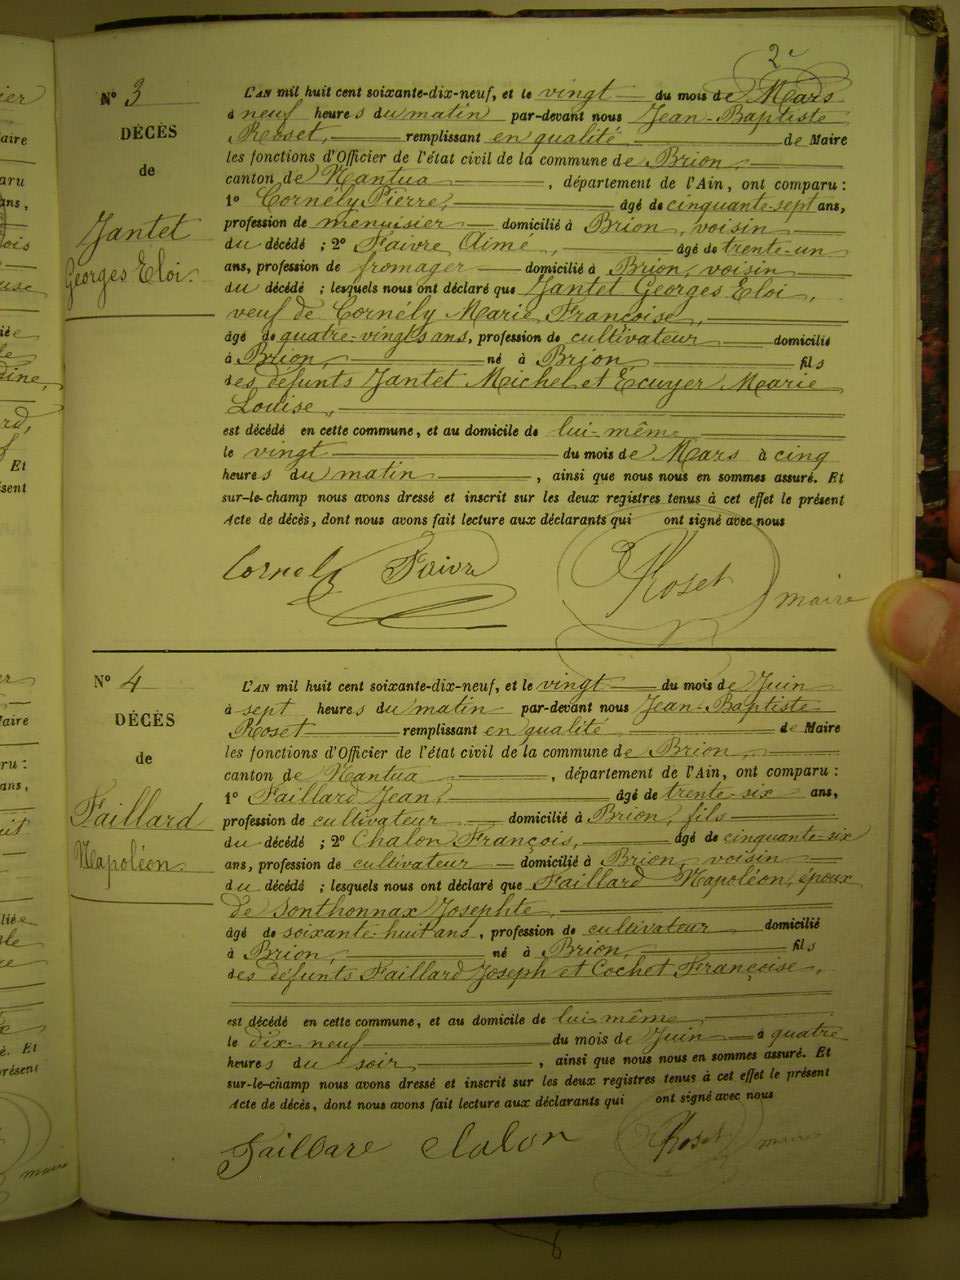 2
N° 3
DÉCÈS
de
Jantet
Georges Eloi.
L'AN mil huit cent soixante-dix-neuf, et le vingt du mois de Mars
à neuf heures du matin par-devant nous Jean-Baptiste
Roset, remplissant en qualité de Maire
les fonctions d'Officier de l'état civil de la commune de Brion,
canton de Nantua, département de l'Ain, ont comparu :
1° Cornély Pierre, âgé de cinquante-sept ans,
profession de menuisier domicilié à Brion, voisin
du décédé ; 2° Faivre Aimé, âgé de trente-un
ans, profession de fromager domicilié à Brion, voisin
du décédé ; lesquels nous ont déclaré que Jantet Georges Eloi,
veuf de Cornély Marie Françoise,
âgé de quatre-vingts ans, profession de cultivateur domicilié
à Brion, né à Brion fils
des défunts Jantet Michel et Ecuyer Marie
Louise,
est décédé en cette commune, et au domicile de lui-même
le vingt du mois de Mars à cinq
heures du matin, ainsi que nous nous en sommes assuré. Et
sur-le-champ nous avons dressé et inscrit sur les deux registres tenus à cet effet le présent
Acte de décès, dont nous avons fait lecture aux déclarants qui ont signé avec nous
Cornely Faivre Roset maire
N° 4
DÉCÈS
de
Faillard
Napoléon.
L'AN mil huit cent soixante-dix-neuf, et le vingt du mois de Juin
à sept heures du matin par-devant nous Jean-Baptiste
Roset remplissant en qualité de Maire
les fonctions d'Officier de l'état civil de la commune de Brion,
canton de Nantua, département de l'Ain, ont comparu :
1° Faillard Jean, âgé de trente-six ans,
profession de cultivateur domicilié à Brion, fils
du décédé ; 2° Chalon François, âgé de cinquante-six
ans, profession de cultivateur domicilié à Brion, voisin
du décédé ; lesquels nous ont déclaré que Faillard Napoléon, époux
de Sonthonnax Josephte,
âgé de soixante-huit ans, profession de cultivateur domicilié
à Brion, né à Brion, fils
des défunts Faillard Joseph et Cochet Françoise,
est décédé en cette commune, et au domicile de lui-même
le dix-neuf du mois de Juin à quatre
heures du soir, ainsi que nous nous en sommes assuré. Et
sur-le-champ nous avons dressé et inscrit sur les deux registres tenus à cet effet le présent
Acte de décès, dont nous avons fait lecture aux déclarants qui ont signé avec nous
Faillard Chalon Roset maire